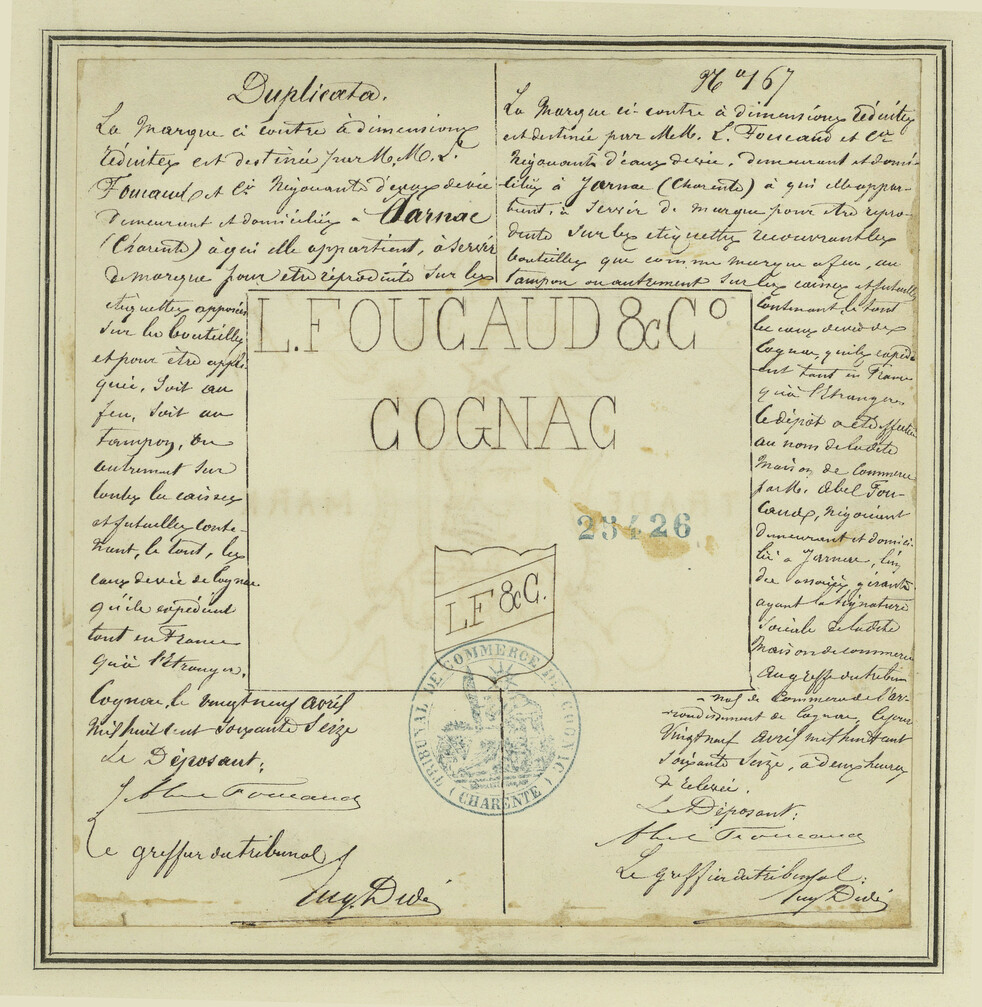 Duplicata.
La Marque ci contre à dimensions
réduites est destinée par M.M. L.
Foucaud et Cie Négociants d'eaux de vie
Demeurant et domiciliés à Jarnac
(Charente) à qui elle appartient, à servir
de marque pour être reproduite sur les
étiquettes apposées
sur les bouteilles
et pour être appli-
quée, soit au
feu, soit au
tampon, ou
autrement sur
toutes les caisses
et futailles conte-
nant, le tout, les
eaux de vie de Cognac
qu'ils expédient
tant en France
qu'à l'Etranger.
Cognac, le vingt neuf avril
Mil huit cent soixante seize
Le Déposant:
Abel Foucaud
Le greffier du tribunal
Aug. Didé
No 167
La Marque ci-contre à dimensions réduites
est destinée par M.M. L. Foucaud et Cie
Négociants d'eaux de vie, demeurant et domi-
ciliés à Jarnac (Charente) à qui elle appar-
tient, à servir de marque pour être repro-
duite sur les etiquettes recouvrant les
bouteilles que comme marque à feu, au
tampon ou autrement sur les caisses et futailles
Contenant le tout
les eaux de vie de
Cognac, qu'ils expédi-
ent tant en France
qu'à l'Etranger.
Le dépôt a été effectué
au nom de la dite
Maison de Commerce
par M. Abel Fou-
caud, Négociant
demeurant et domici-
lié à Jarnac, l'un
des associés gérants
ayant la signature
sociale de la dite
Maison de commerce
au greffe du tribu-
nal de Commerce de l'ar-
rondissement de Cognac, le jour
Vingt neuf avril mil huit cent
soixante seize, à deux heures
de relevée.
Le Déposant:
Abel Foucaud
Le greffier du tribunal:
Aug Didé
L. FOUCAUD & Co
COGNAC
TRADE MARK
25426
LF & C.
TRIBUNAL DE COMMERCE DE COGNAC
(CHARENTE)